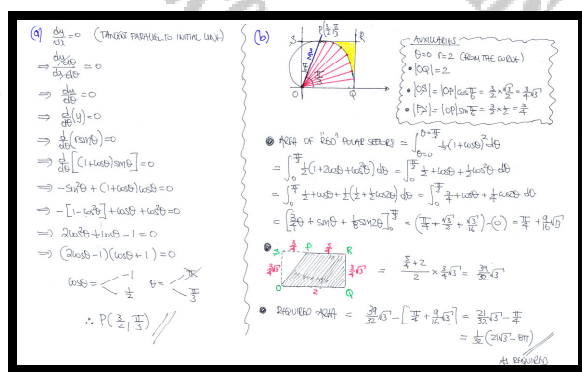 (a) dy/dx = 0 (TANGENT PARALLEL TO INITIAL LINE)
⇒ dy/dθ / dx/dθ = 0
⇒ dy/dθ = 0
⇒ d/dθ (y) = 0
⇒ d/dθ (rsinθ) = 0
⇒ d/dθ [(1+cosθ)sinθ] = 0
⇒ -sin²θ + (1+cosθ)cosθ = 0
⇒ -[1-cos²θ] + cosθ + cos²θ = 0
⇒ 2cos²θ + cosθ - 1 = 0
⇒ (2cosθ-1)(cosθ+1) = 0
cosθ = < -1, 1/2 θ = < π, π/3
∴ P(3/2, π/3)
(b)
P(3/2, π/3)
S R
3/2
π/3
O Q
AUXILIARIES
θ=0 r=2 (FROM THE CURVE)
• |OQ| = 2
• |OS| = |OP|cos π/6 = 3/2 × √3/2 = 3/4 √3
• |PS| = |OP|sin π/6 = 3/2 × 1/2 = 3/4
AREA OF "RED" POLAR SECTORS = ∫ θ=0 to θ=π/3 1/2 (1+cosθ)² dθ
= ∫ 0 to π/3 1/2 (1+2cosθ+cos²θ) dθ = ∫ 0 to π/3 1/2 + cosθ + 1/2 cos²θ dθ
= ∫ 0 to π/3 1/2 + cosθ + 1/2 (1/2 + 1/2 cos2θ) dθ = ∫ 0 to π/3 3/4 + cosθ + 1/4 cos2θ dθ
= [3/4 θ + sinθ + 1/8 sin2θ] 0 to π/3 = (π/4 + √3/2 + √3/16) - (0) = π/4 + 9/16 √3
S 3/4 P 5/4 R
3/4 √3 3/4 √3
O 2 Q
= (5/4 + 2)/2 × 3/4 √3 = 39/32 √3
REQUIRED AREA = 39/32 √3 - [π/4 + 9/16 √3] = 21/32 √3 - π/4
= 1/32 (21√3 - 8π)
AS REQUIRED